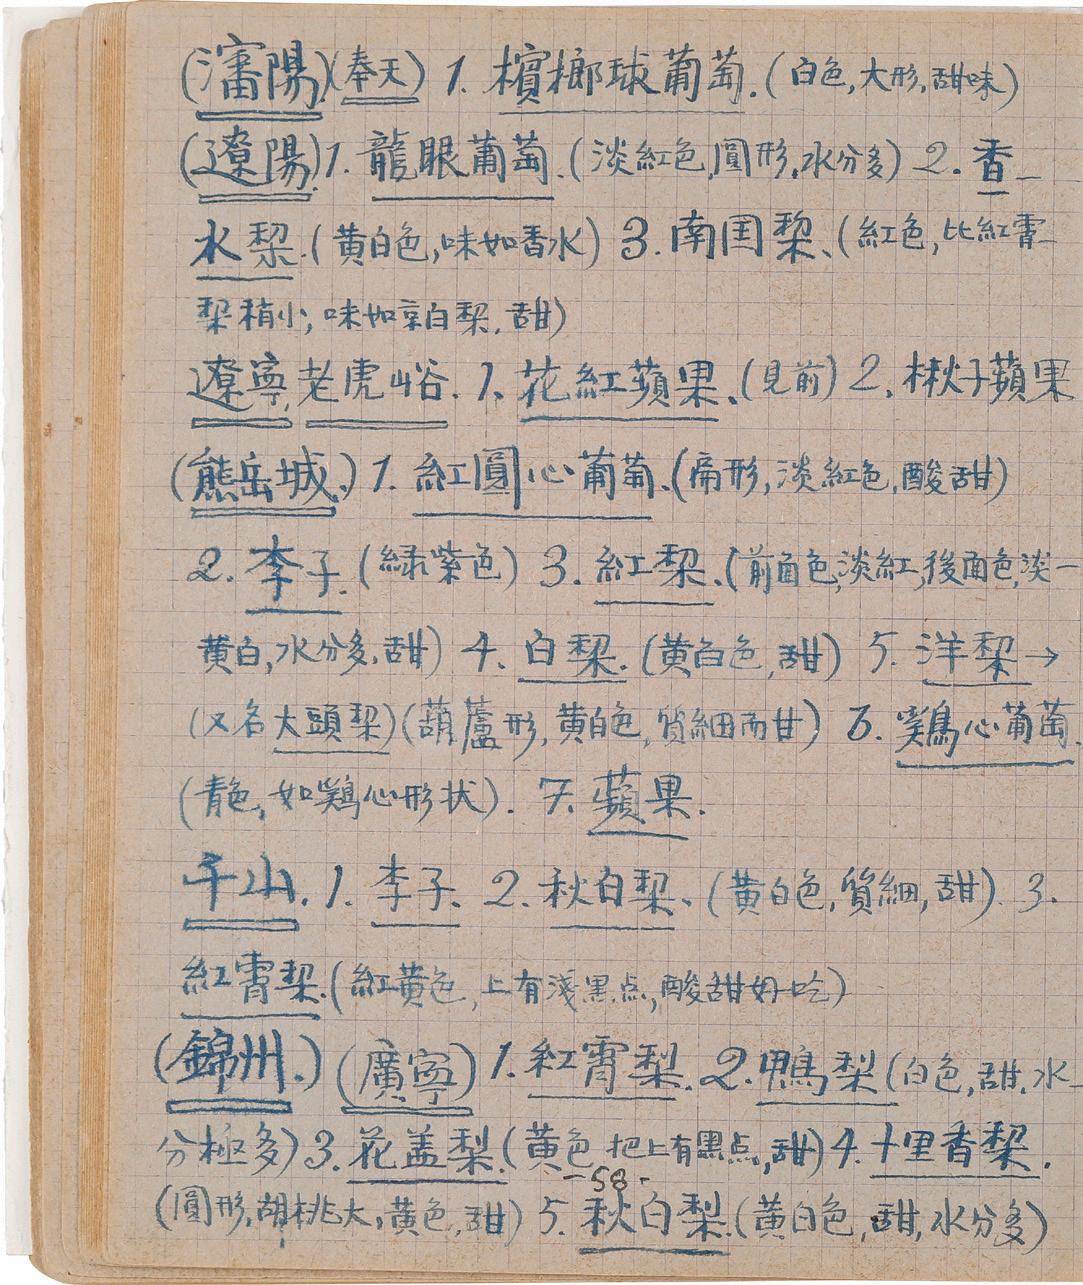 (瀋陽)(奉天) 1. 檳榔球葡萄.(白色,大形,甜味)
(遼陽)1.龍眼葡萄.(淡紅色,圓形,水分多) 2.香-
水梨.(黃白色,味如香水) 3.南国梨、(紅色,比紅霄-
梨稍小,味如京白梨,甜)
遼寧,老虎峪.1.花紅蘋果、(見前) 2.楸子蘋果
(熊岳城.) 1.紅圓心葡萄.(扁形,淡紅色,酸甜)
2.李子.(綠紫色) 3.紅梨.(前面色,淡紅,後面色,淡-
黃白,水分多,甜) 4.白梨.(黃白色,甜) 5.洋梨→
(又名大頭梨)(葫蘆形,黃白色,質細而甘) 6.鷄心葡萄.
(青色,如鷄心形状). 7.蘋果.
千山.1.李子、2.秋白梨、(黃白色,質細,甜). 3.
紅霄梨.(紅黃色,上有淺黑点,酸甜好吃)
(錦州.)(廣寧) 1.紅霄梨.2.鴨梨(白色,甜,水-
分極多)3.花盖梨.(黃色,把上有黑点,甜)4.十里香梨.
-58-
(圓形,胡桃大,黃色,甜) 5.秋白梨.(黃白色,甜,水分多)